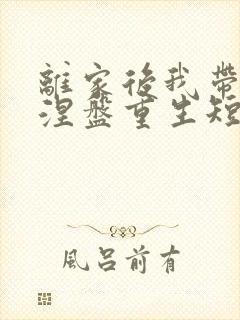 離家後我帶
涅盤重生短
風呂前有